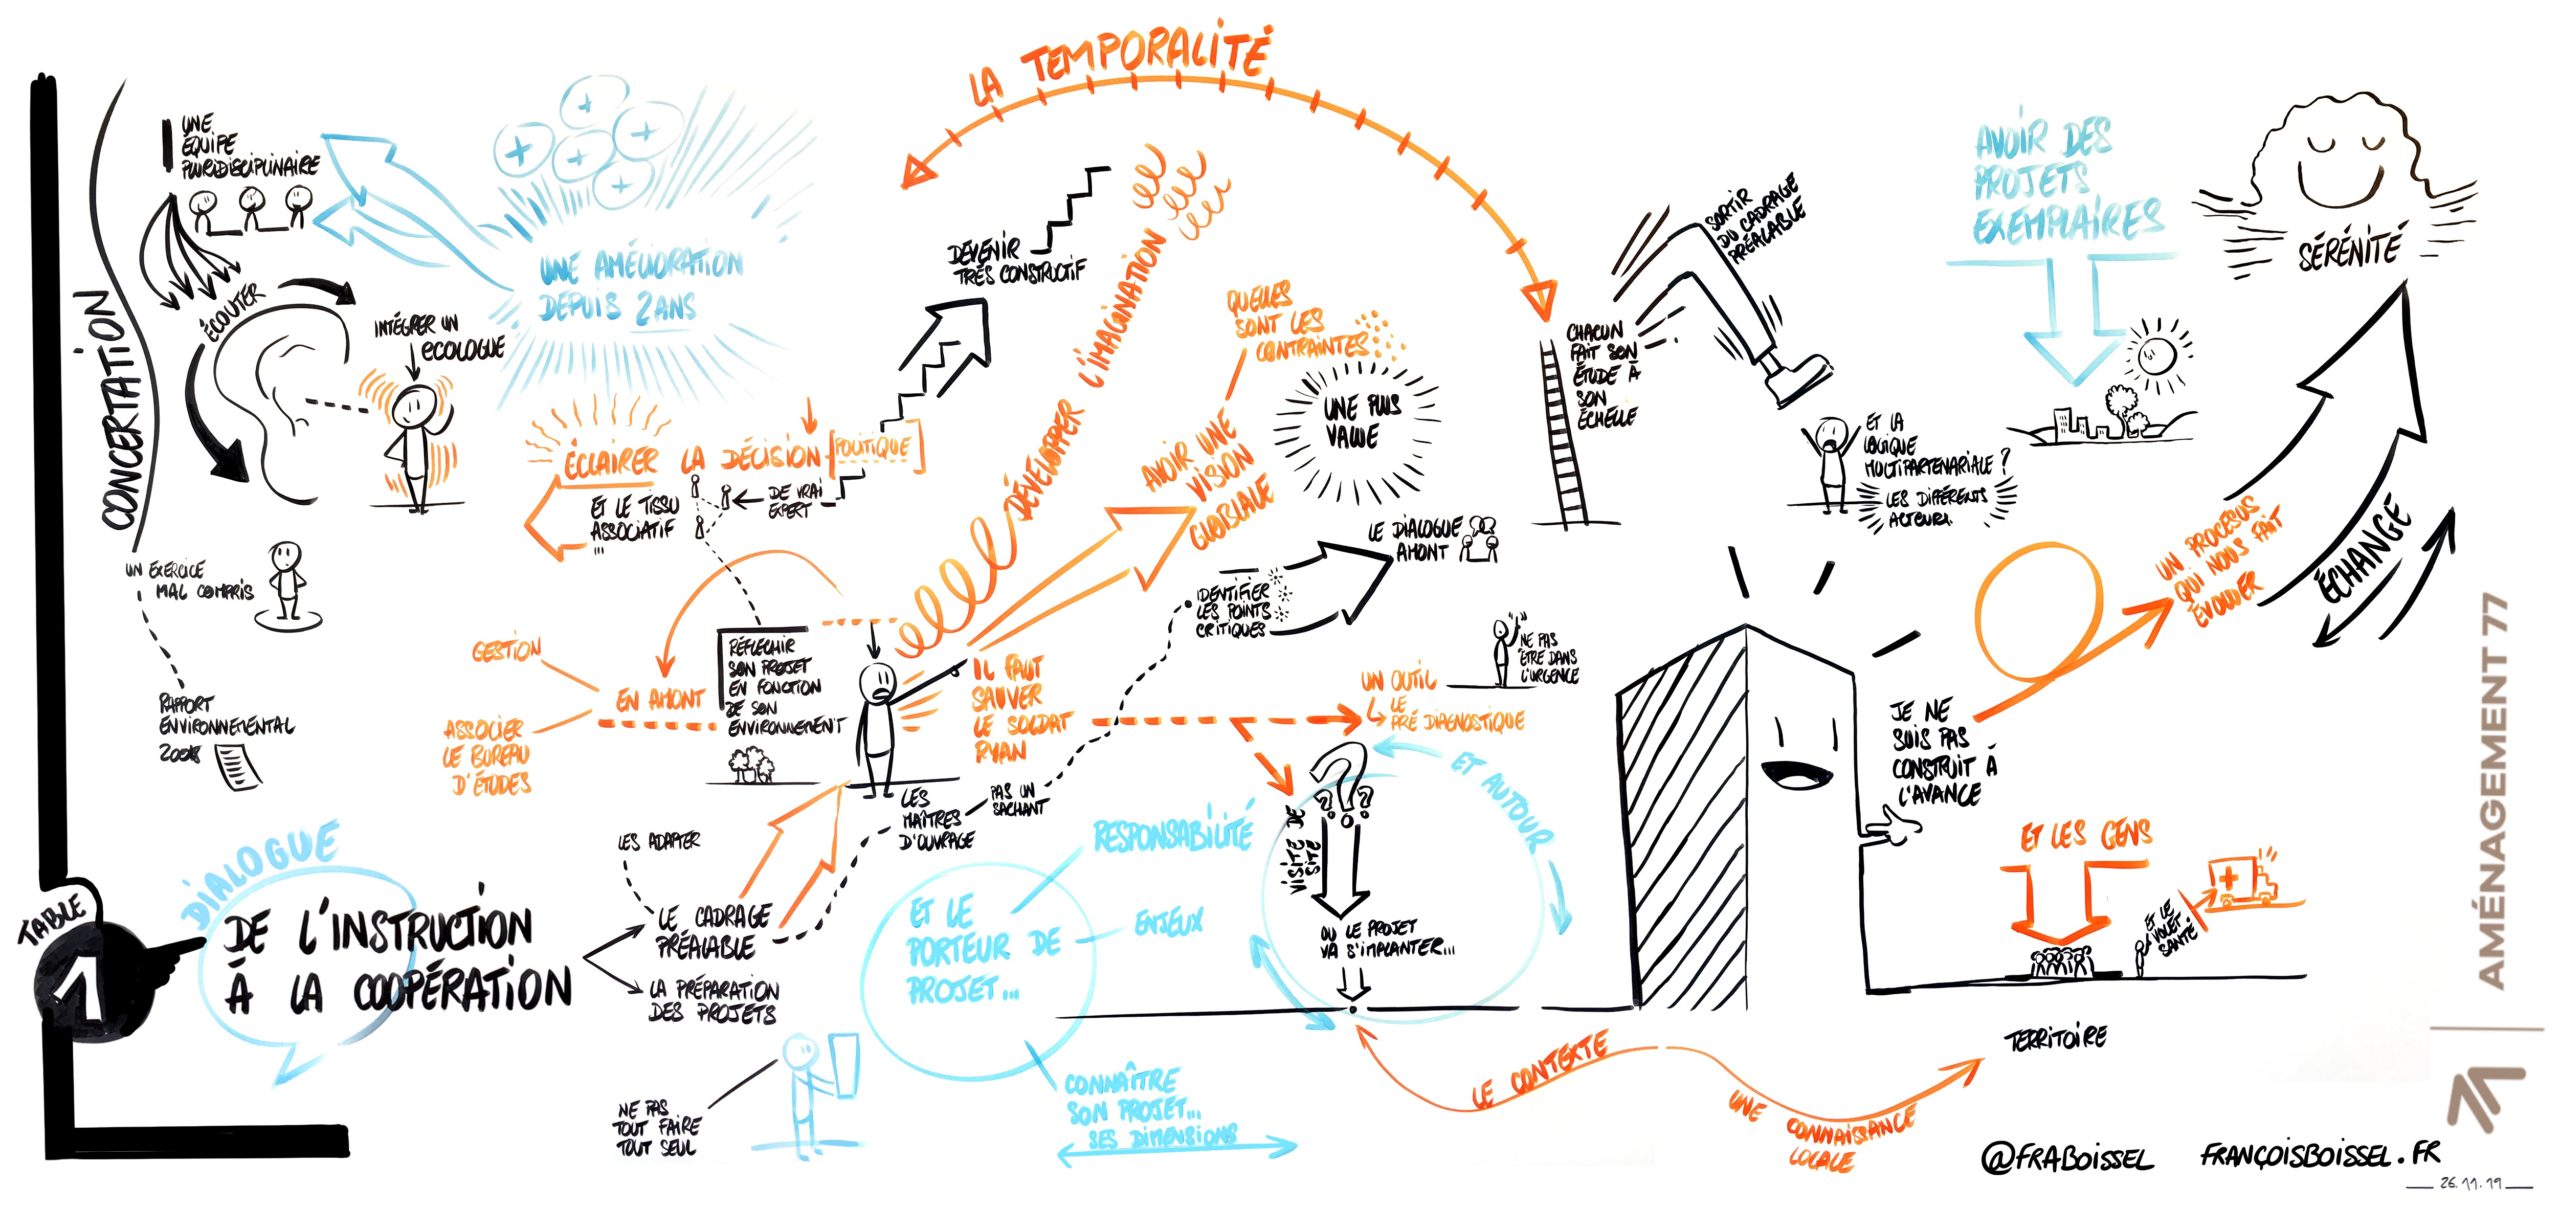 LA TEMPORALITÉ
CONCERTATION
UNE
ÉQUIPE
PLURIDISCIPLINAIRE
ÉCOUTER
INTÉGRER UN
ECOLOGUE
UNE AMÉLIORATION
DEPUIS 2 ANS
UN EXERCICE
MAL COMPRIS
RAPPORT
ENVIRONNEMENTAL
ÉCLAIRER LA DÉCISION [POLITIQUE]
ET LE TISSU
ASSOCIATIF
...
DE VRAI
EXPERT
DEVENIR
TRÈS CONSTRUCTIF
DÉVELOPPER L'IMAGINATION
AVOIR UNE
VISION
GLOBLALE
QUELLES
SONT LES
CONTRAINTES
UNE PLUS
VALUE
LE DIALOGUE
AMONT
IDENTIFIER
LES POINTS
CRITIQUES
GESTION
EN AMONT
ASSOCIER
LE BUREAU
D'ÉTUDES
RÉFLECHIR
SON PROJET
EN FONCTION
DE SON
ENVIRONNEMENT
IL FAUT
SAUVER
LE SOLDAT
RYAN
UN OUTIL
LE
PRÉ DIAGNOSTIQUE
NE PAS
ÊTRE DANS
L'URGENCE
CHACUN
FAIT SON
ÉTUDE À
SON
ÉCHELLE
SORTIR
DU CADRAGE
PRÉALABLE
ET LA
LOGIQUE
MULTIPARTENARIALE ?
LES DIFFÉRENTS
ACTEURS.
AVOIR DES
PROJETS
EXEMPLAIRES
SÉRÉNITÉ
ÉCHANGE
UN PROCESUS
QUI NOUS FAIT
ÉVOLUER
JE NE
SUIS PAS
CONSTRUIT À
L'AVANCE
ET LES GENS
ET LE
VOLET
SANTÉ
TERRITOIRE
TABLE
1
DIALOGUE
DE L'INSTRUCTION
À LA COOPÉRATION
LES ADAPTER
LE CADRAGE
PRÉALABLE
LA PRÉPARATION
DES PROJETS
LES
MAÎTRES
D'OUVRAGE
PAS UN
SACHANT
NE PAS
TOUT FAIRE
TOUT SEUL
ET LE
PORTEUR DE
PROJET...
RESPONSABILITÉ
ENJEUX
CONNAÎTRE
SON PROJET...
SES DIMENSIONS
VISITE DE
SITE
ET AUTOUR
???
OU LE PROJET
VA S'IMPLANTER...
LE CONTEXTE
UNE CONNAISSANCE
LOCALE
AMÉNAGEMENT 77
@FRABOISSEL FRANÇOISBOISSEL.FR
26.11.19